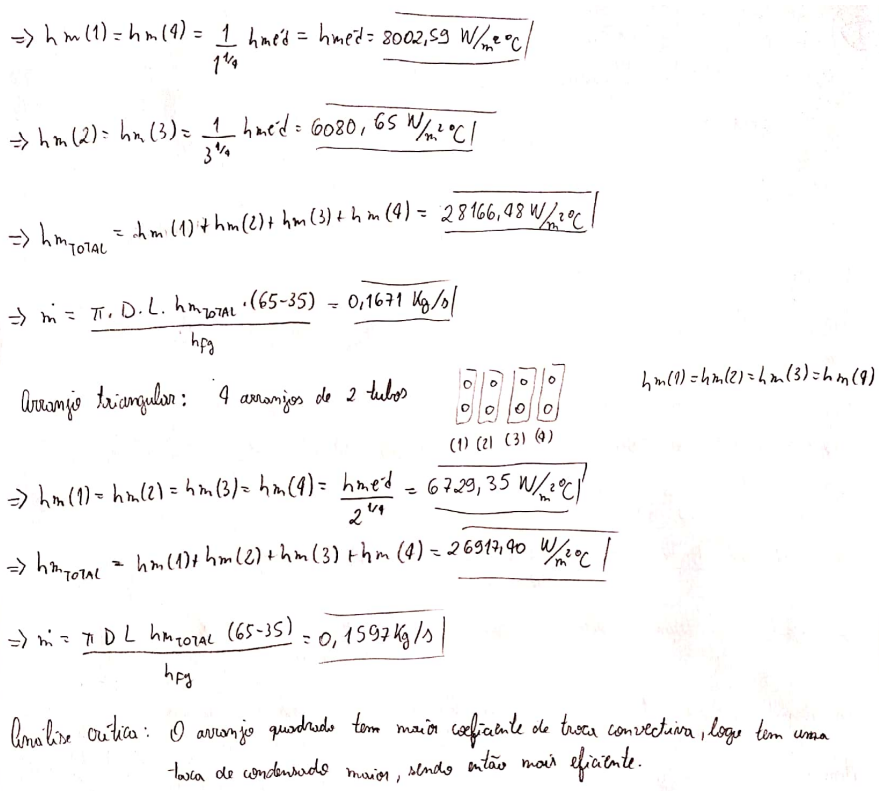 => hm(1) = hm(4) = 1/1^1/4 hméd = hméd = 8002,59 W/m²°C
=> hm(2) = hm(3) = 1/3^1/4 hméd = 6080,65 W/m²°C
=> hm TOTAL = hm(1) + hm(2) + hm(3) + hm(4) = 28166,48 W/m²°C
=> ṁ = π. D. L. hm TOTAL .(65-35) / hfg = 0,1671 Kg/s
Arranjo triangular: 4 arranjos de 2 tubos
(1) (2) (3) (4)
hm(1) = hm(2) = hm(3) = hm(4)
=> hm(1) = hm(2) = hm(3) = hm(4) = hméd / 2^1/4 = 6729,35 W/m²°C
=> hm TOTAL = hm(1) + hm(2) + hm(3) + hm(4) = 26917,40 W/m²°C
=> ṁ = π D L hm TOTAL (65-35) / hfg = 0,1597 Kg/s
Análise crítica: O arranjo quadrado tem maior coeficiente de troca convectiva, logo tem uma
taxa de condensado maior, sendo então mais eficiente.